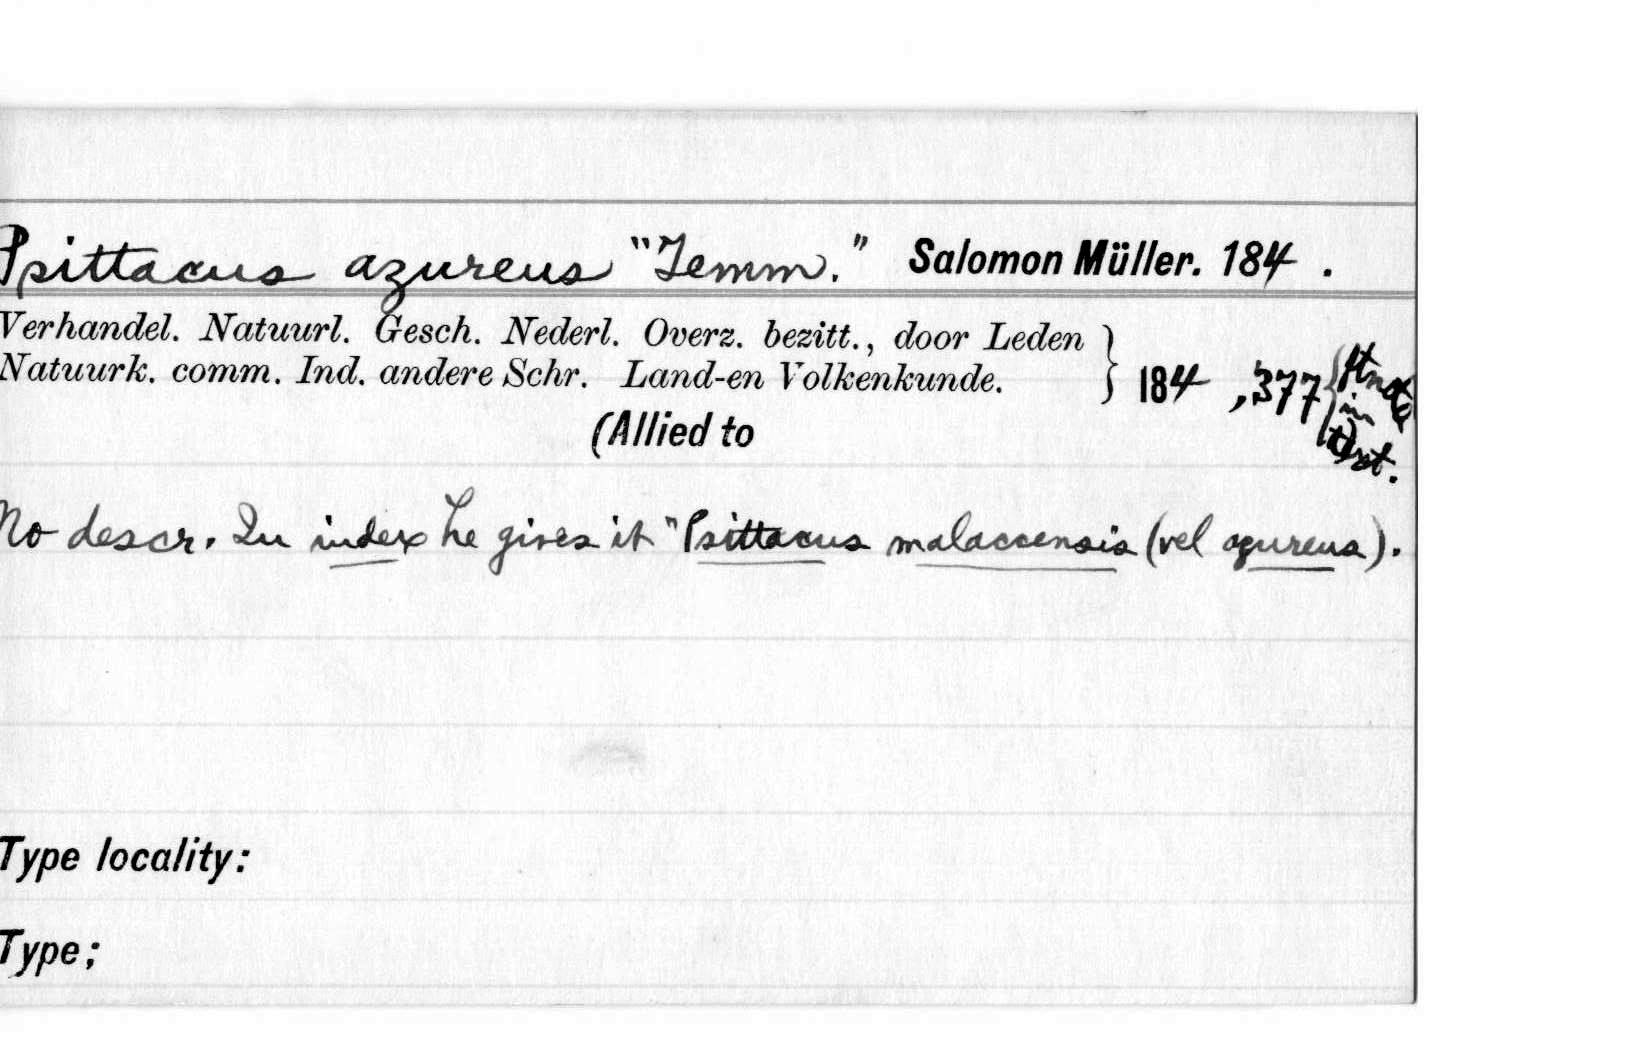 Psittacus azureus "Temm." Salomon Müller. 184 .
Verhandel. Natuurl. Gesch. Nederl. Overz. bezitt., door Leden
Natuurk. comm. Ind. andere Schr. Land-en Volkenkunde. } 184 , 377 { ftnote
in
(Allied to
No descr. In index he gives it "Psittacus malaccensis (vel azureus).
Type locality:
Type;